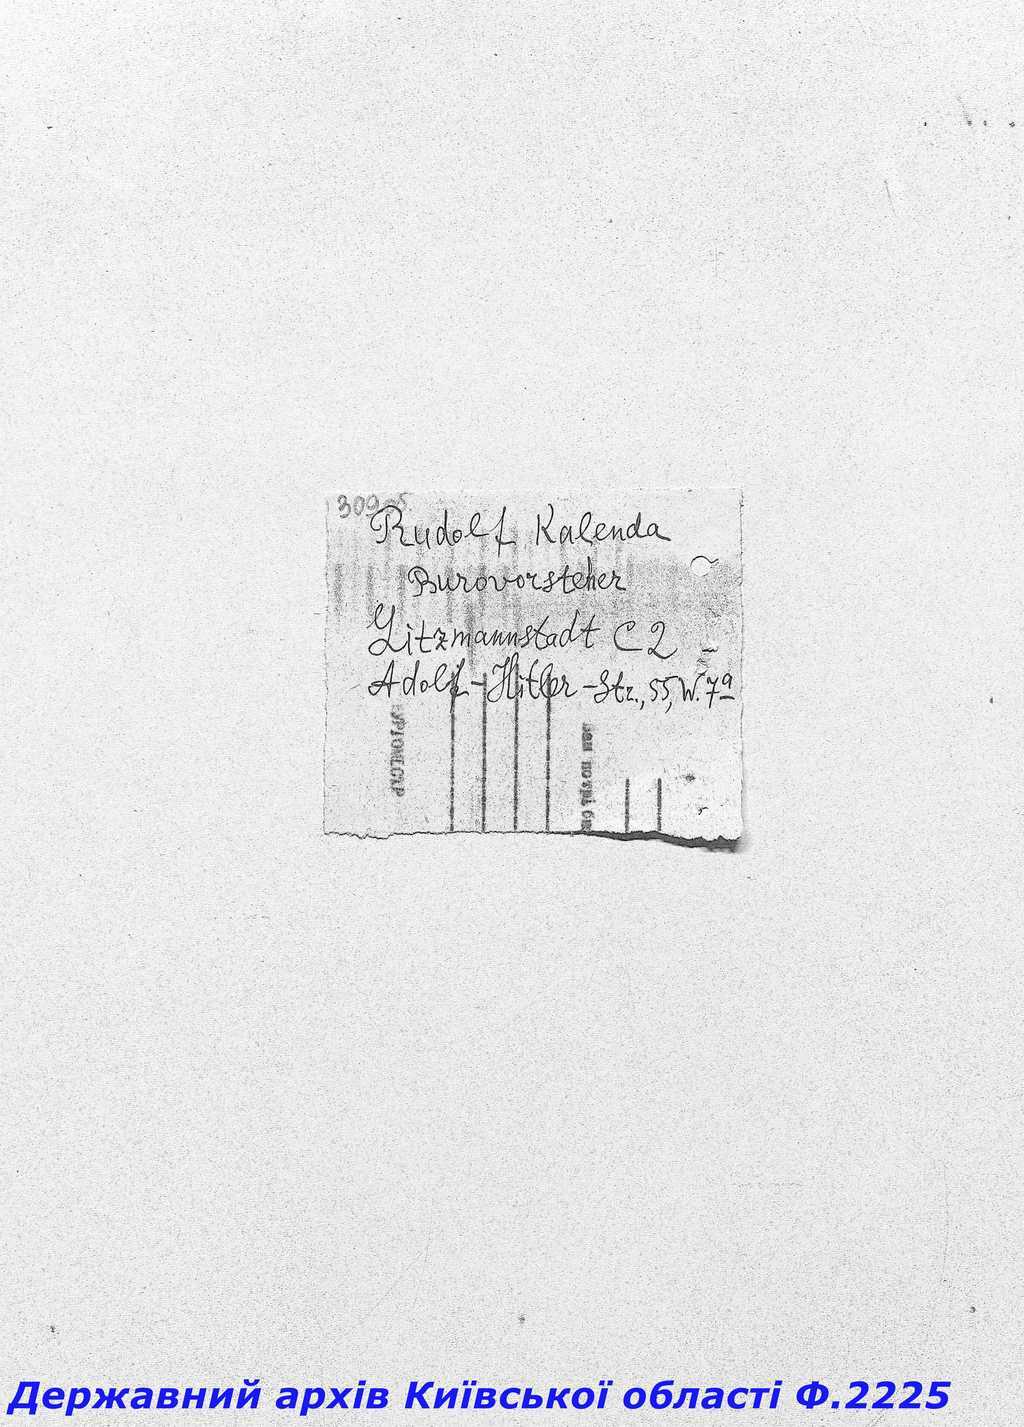 309
Rudolf Kalenda
Burovorsteher
Litzmannstadt C 2
Adolf-Hitler-Str., 55, W. 7a
Державний архів Київської області Ф.2225